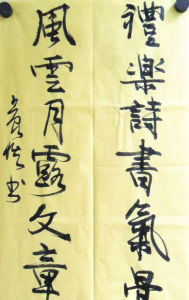 禮樂詩書氣骨
風雲月露文章